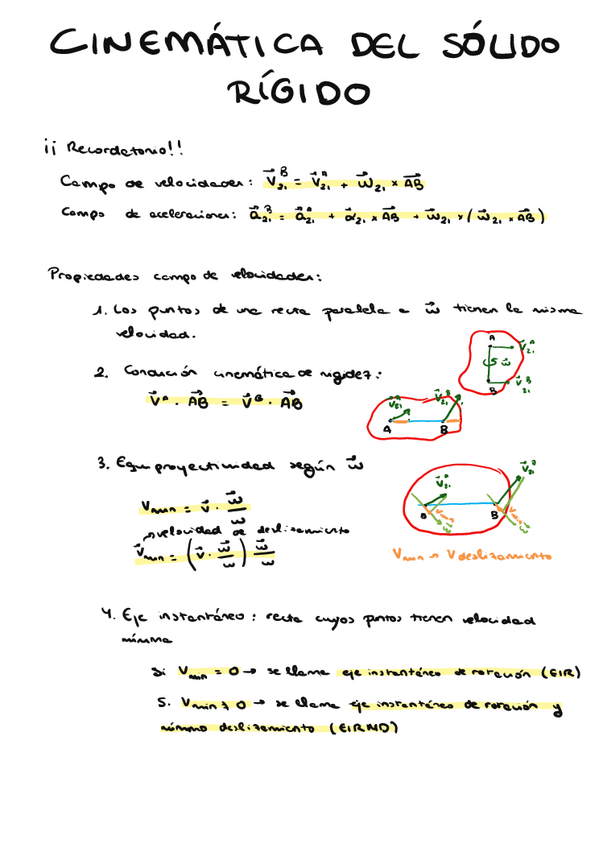 CINEMÁTICA DEL SÓLIDO
RÍGIDO
¡¡ Recordatorio!!
Campo de velocidades: V⃗₂₁ᴮ = V⃗₂₁ᴬ + ω⃗₂₁ × AB⃗
Campo de aceleraciones: a⃗₂₁ᴮ = a⃗₂₁ᴬ + α⃗₂₁ × AB⃗ + ω⃗₂₁ × (ω⃗₂₁ × AB⃗)
Propiedades campo de velocidades:
1. Los puntos de una recta paralela a ω⃗ tienen la misma
velocidad.
A V⃗₂₁ᴬ
ω⃗
B V⃗₂₁ᴮ
2. Condición cinemática de rigidez:
V⃗ᴬ · AB⃗ = V⃗ᴮ · AB⃗
V⃗₂₁ᴬ V⃗₂₁ᴮ
A B
3. Equiproyectividad según ω⃗
Vmin = v⃗ · ω⃗/ω
velocidad de deslizamiento
V⃗min = (v⃗ · ω⃗/ω) ω⃗/ω
V⃗₂₁ᴬ V⃗₂₁ᴮ
B
Vmin Vmin
ω⃗ ω⃗
Vmin → Vdeslizamiento
4. Eje instantáneo: recta cuyos puntos tienen velocidad
mínima
Si Vmin = 0 → se llama eje instantáneo de rotación (EIR)
Si Vmin ≠ 0 → se llama eje instantáneo de rotación y
mínimo deslizamiento (EIRMD)